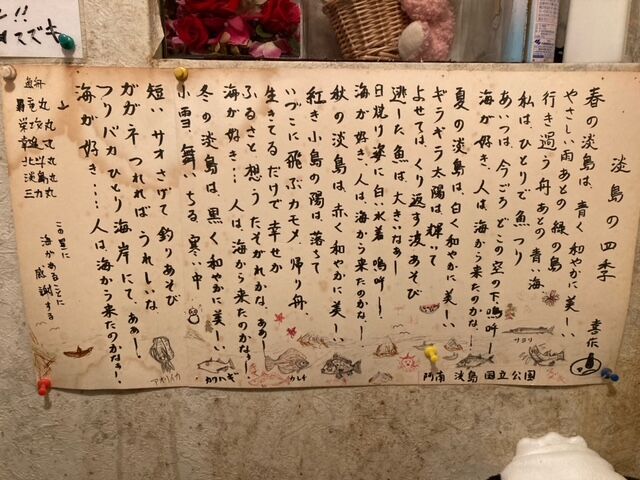 淡島の四季
春の淡島は、青く和やかに美しい
やさしい雨あとの緑の島
行き過う舟あとの青い海
私は、ひとりで魚つり
あいつは、今ごろどこの空の下嗚呼ー
海が好き、人は、海から来たのかなー
夏の淡島は、白く和やかに美ーい
ギラギラ太陽は、輝いて
よせては、くり返す波あそび
逃した魚は、大きいなぁー
日焼り姿に白い水着 嗚呼ー!
海が好き、人は、海から来たのかなー
秋の淡島は、赤く和やかに美ーい
紅き小島の陽は、落ちて
いづこに飛ぶカモメ、帰り舟
生きてるだけで幸せか
ふるさと想うたそがれかなぁ、あぁー
海が好き…人は、海から来たのかなぁー
冬の淡島は、黒く和やかに美ーい
小雪、舞いちる、寒い中
短いサオさげて釣りあそび
ガガネつれればうれしいな
つりバカひとり海岸にて、あぁー!
海が好き…、人は、海から来たのかなぁー!
この里に
海があることに
感謝する
サヨリ
カレイ
カワハギ
アオリイカ
阿南 淡島国立公園